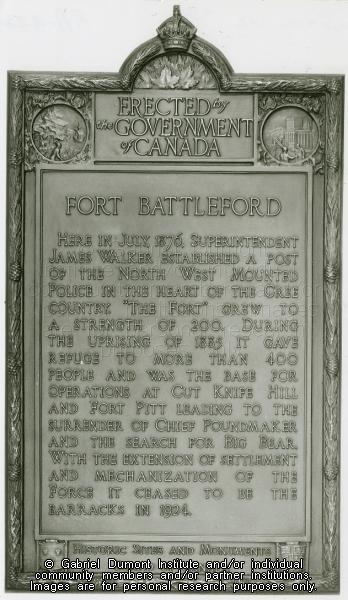 ERECTED by
the GOVERNMENT
of CANADA
FORT BATTLEFORD
HERE IN JULY, 1876, SUPERINTENDENT
JAMES WALKER ESTABLISHED A POST
OF THE NORTH WEST MOUNTED
POLICE IN THE HEART OF THE CREE
COUNTRY. "THE FORT" GREW TO
A STRENGTH OF 200. DURING
THE UPRISING OF 1885 IT GAVE
REFUGE TO MORE THAN 400
PEOPLE AND WAS THE BASE FOR
OPERATIONS AT CUT KNIFE HILL
AND FORT PITT LEADING TO THE
SURRENDER OF CHIEF POUNDMAKER
AND THE SEARCH FOR BIG BEAR.
WITH THE EXTENSION OF SETTLEMENT
AND MECHANIZATION OF THE
FORCE IT CEASED TO BE THE
BARRACKS IN 1924.
HISTORIC SITES AND MONUMENTS
© Gabriel Dumont Institute and/or individual
community members and/or partner institutions.
Images are for personal research purposes only.